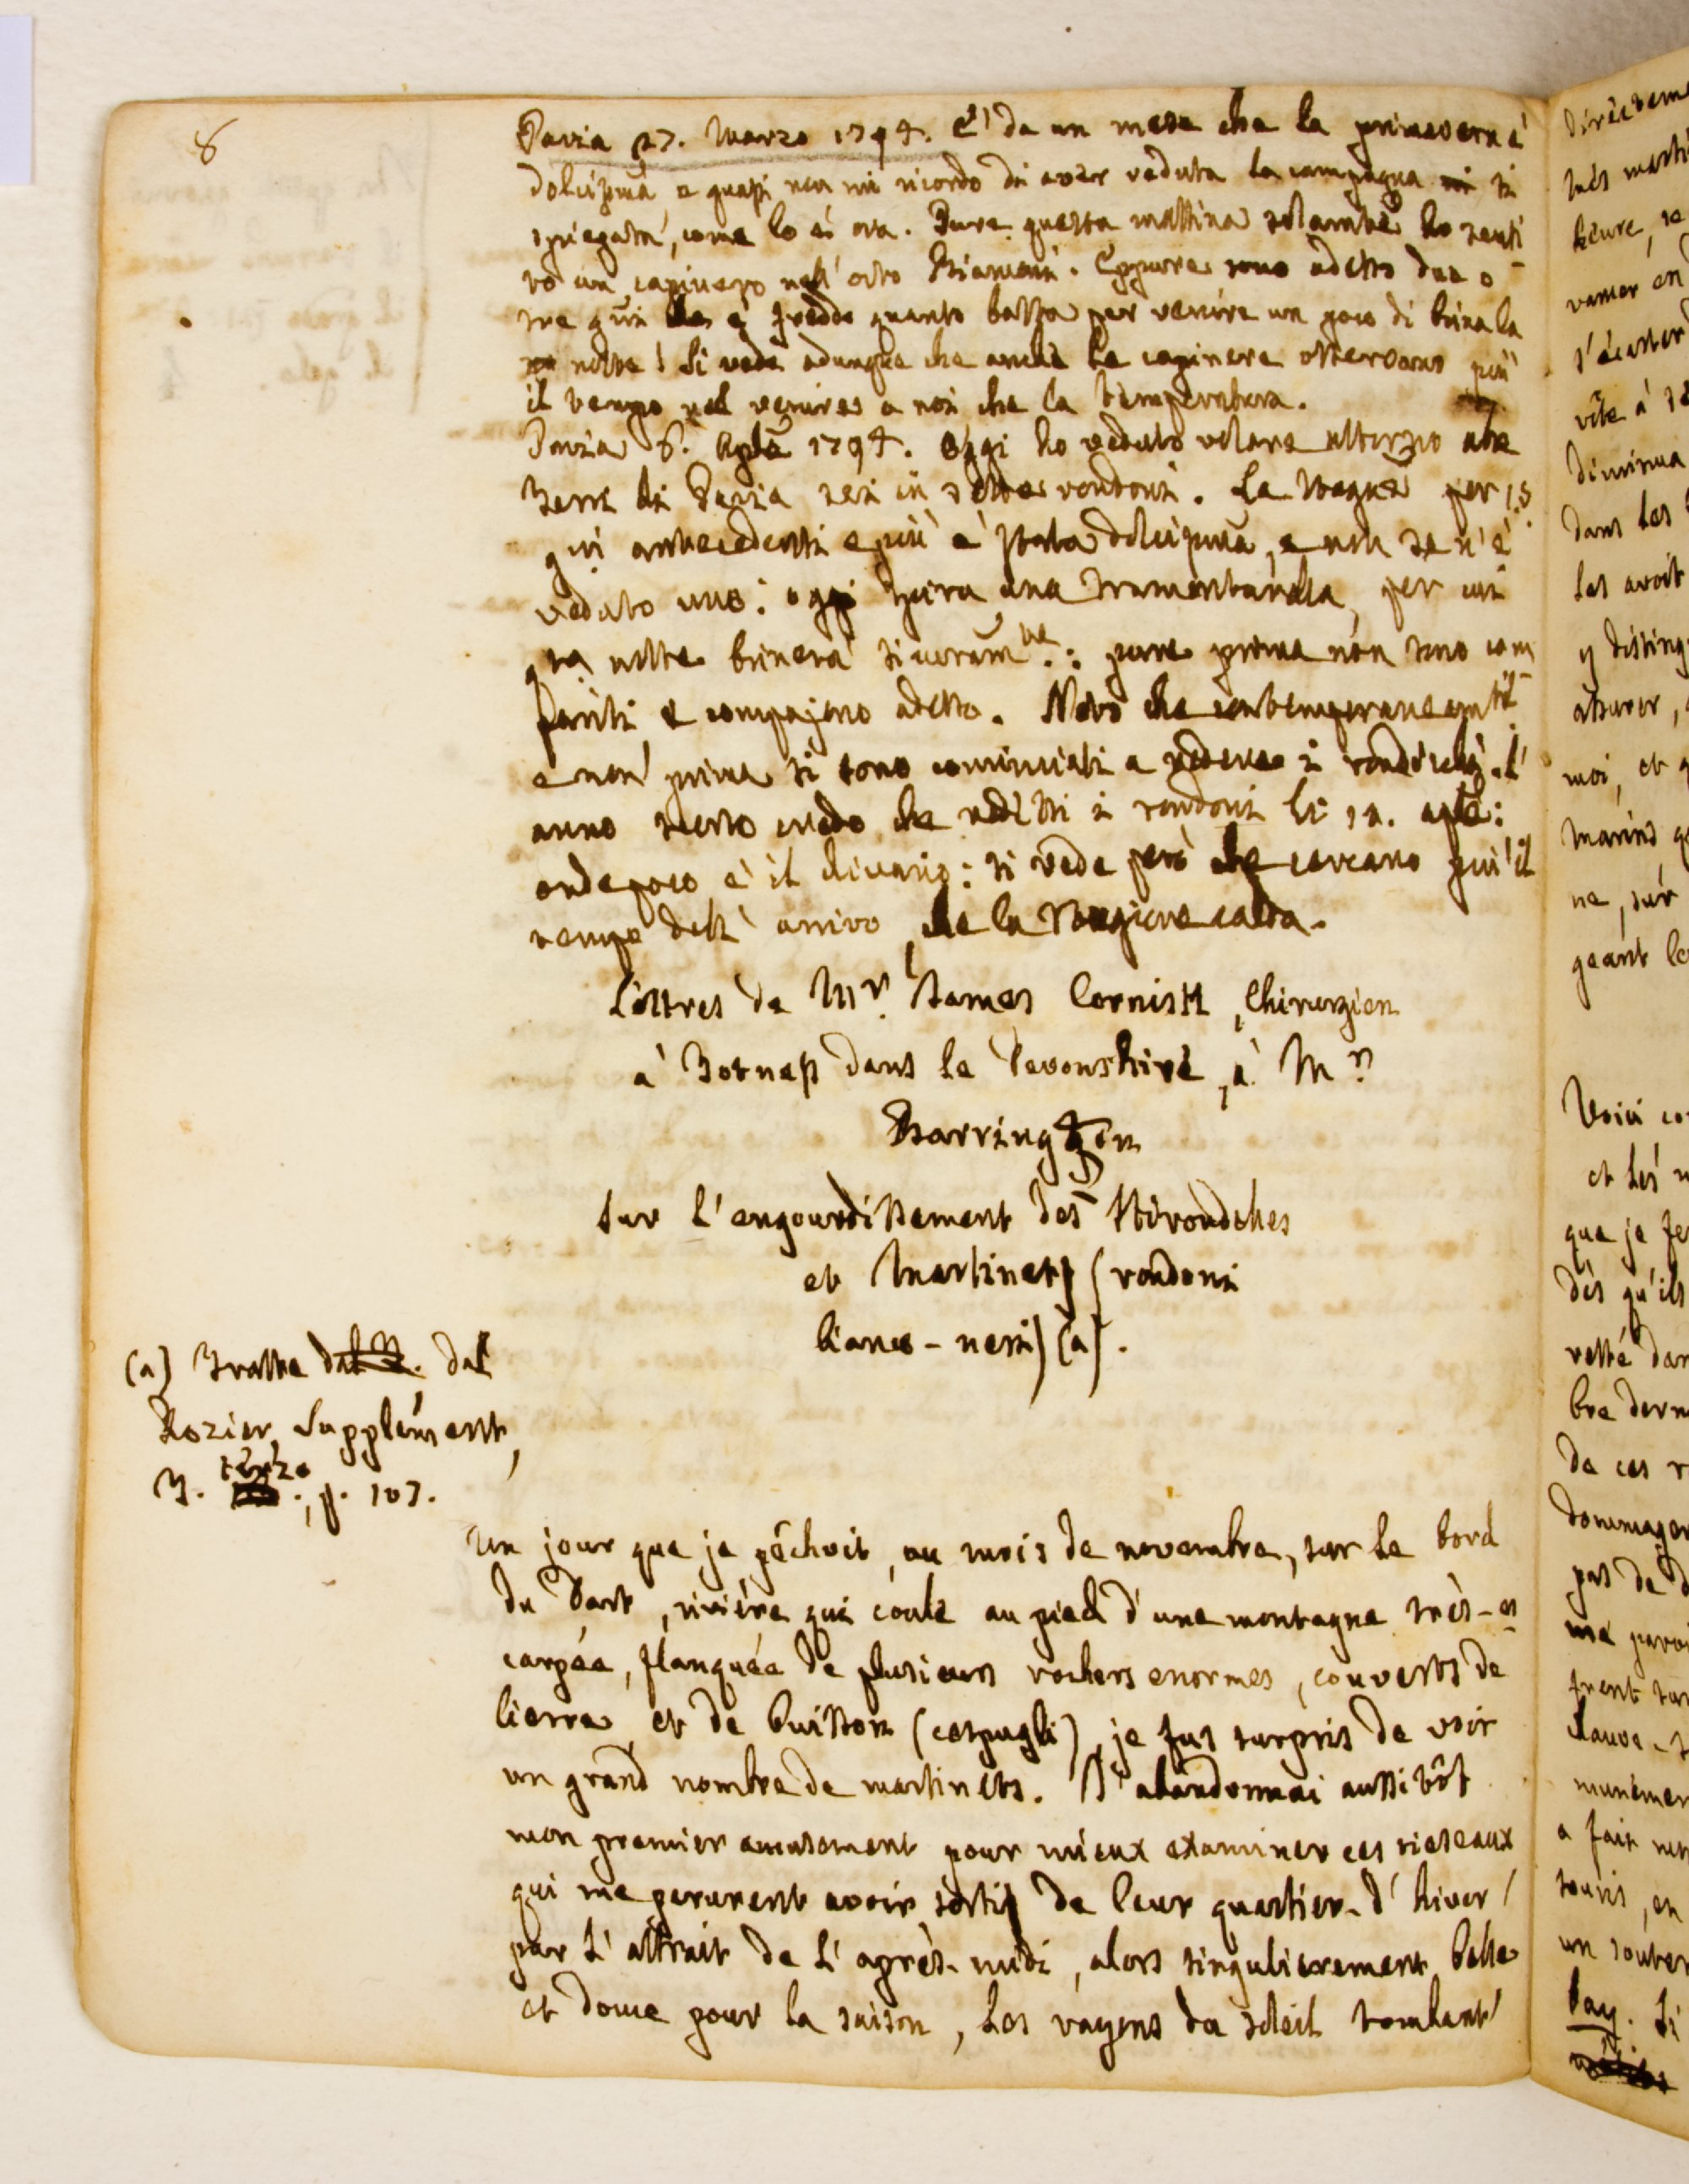 8
Pavia 27. Marzo 1794. E' da un mese che la primavera è
dolcissima, e quasi non mi ricordo di aver veduta la campagna si
spiegata, come lo è ora. Pure questa mattina solamte ho senti
to un capinero nell' orto Eppure sono adesso due o
tre gni che è freddo quanto basta per venire un poco di brina la
notte! Si vede adunque che anche le capinere osservano più
il tempo nel venire a noi che la temperatura.
Pavia 6. Aple 1794. Oggi ho veduto volare attorno alle
Torri di Pavia sei in sette rondoni. La stagne per 15
gni antecedenti e più è stata dolcissima, e non se n'è
veduto uno: oggi spira una tramontanella, per cui
qta notte brinerà sicuramte.: pure prima non sono com
pariti e compajono adesso. Noto che contemporaneamte
e non prima si sono cominciati a vedere i rondichj. L'
anno scorso credo che vedessi i rondoni li 12. aple:
onde poco è il divario: si vede però che cercano più il
tempo dell' arrivo, che la stagione calda.
Lettres de Mr. James Cornish, Chirurgien
à Totness dans le Devonshire, à Mr.
Barrington
sur l'engourdissement des Hirondelles
et Martinets (rondoni
bianco-neri) (a).
(a) Tratte dal
Rozier, Supplément,
T. terzo, p. 107.
Un jour que je pêchoit, au mois de novembre, sur le bord
du Dart, riviére qui coule au pied d'une montagne très-es
carpée, flanquée de plusieurs rochers enormes, couverts de
lierre et de buisson (cespugli), je fus surpris de voir
un grand nombre de martinets. J'abandonnai aussitôt
mon premier amusement pour mieux examiner ces oiseaux
qui me parurent avoir sortis de leur quartier-d'hiver
par l'attrait de l'après-midi, alors singulierement belle
et douce pour la saison, les rayons du soleil tombant